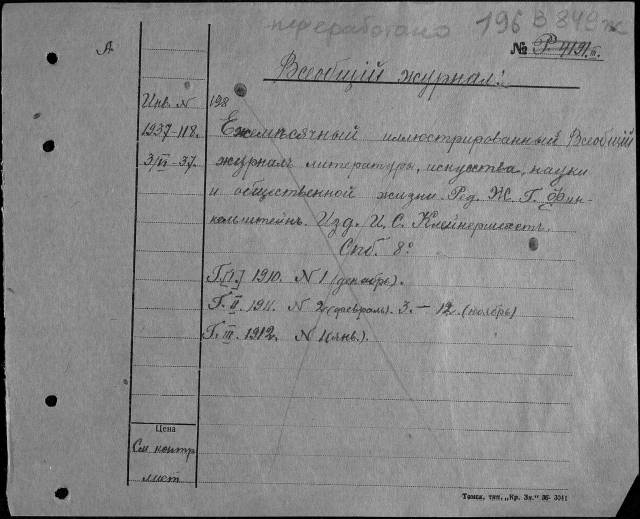 переработано 196 В 849ж
А № Р-4191.III.
Всеобщій журналъ.
Инв. N 198
1937-118. Ежемѣсячный иллюстрированный Всеобщій
3/VI-37. журналъ литературы, искусства, науки
и общественной жизни. Ред. Ж. Г. Фин-
кельштейнъ. Изд. И. С. Клейнершехетъ.
Спб. 8°
Г.[I.] 1910. N 1 (декабрь).
Г. II. 1911. N 2 (февраль). 3. — 12. (ноябрь)
Г. III. 1912. N 1 (янв.).
Цена
См контр
лист
Томск, тип. „Кр. Зн." 36- 3041